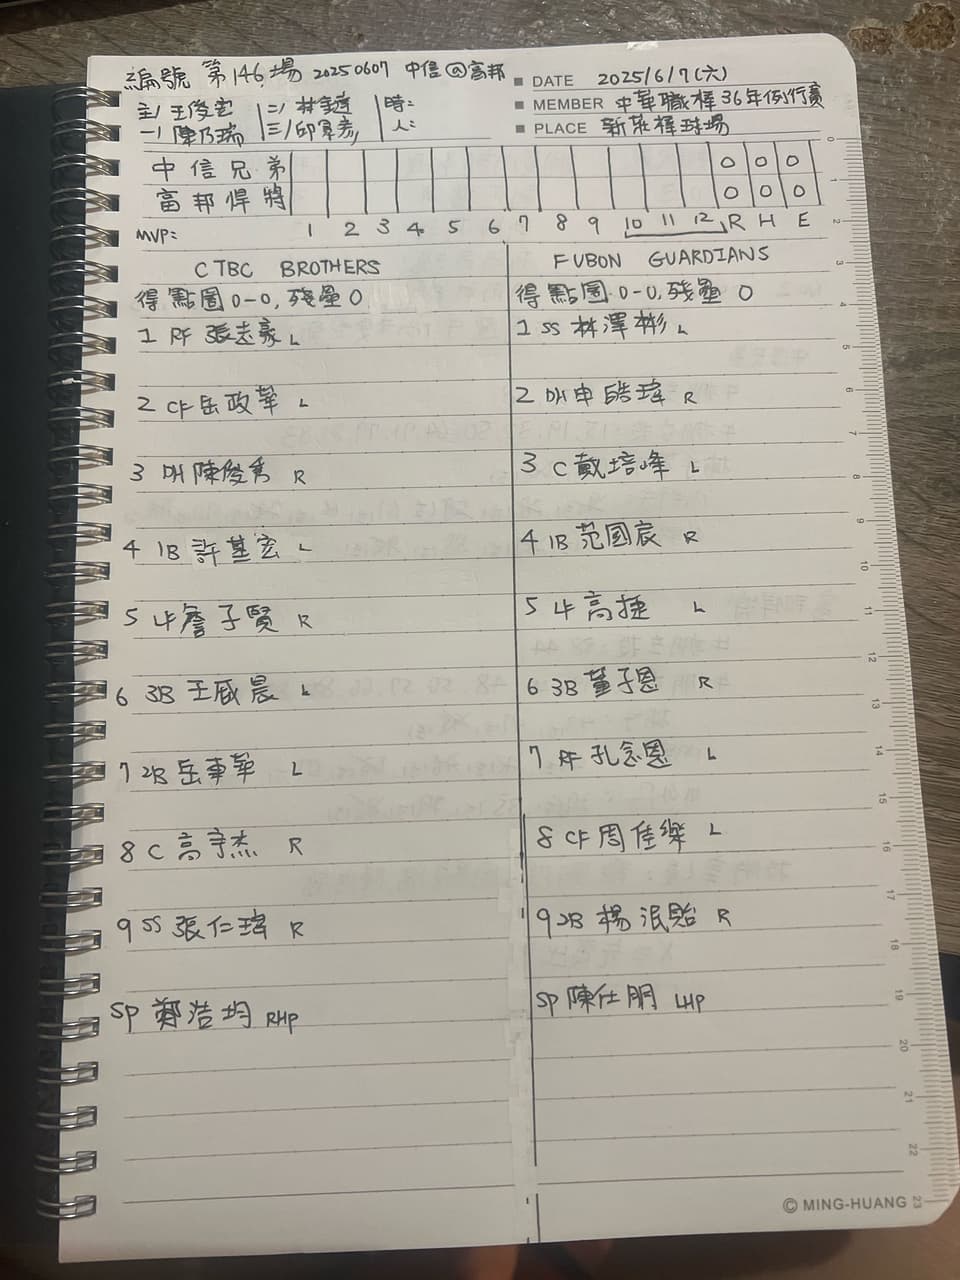 編號 第146場 20250607 中信@富邦
■ DATE 2025/6/7(六)
主/王俊宏 二/林 時:
■ MEMBER 中華職棒36年例行賽
一/陳乃瑞 三/邱景彥 人:
■ PLACE 新莊棒球場
中信兄弟 0 0 0
富邦悍將 0 0 0
MVP: 1 2 3 4 5 6 7 8 9 10 11 12 R H E
CTBC BROTHERS
得點圈0-0,殘壘0
1 RF 張志豪 L
2 CF 岳政華 L
3 DH 陳俊秀 R
4 1B 許基宏 L
5 LF 詹子賢 R
6 3B 王威晨 L
7 2B 岳東華 L
8 C 高宇杰 R
9 SS 張仁瑋 R
SP 鄭浩均 RHP
FUBON GUARDIANS
得點圈0-0,殘壘0
1 SS 林澤彬 L
2 DH 申皓瑋 R
3 C 戴培峰 L
4 1B 范國宸 R
5 LF 高捷 L
6 3B 董子恩 R
7 RF 孔念恩 L
8 CF 周佳樂 L
9 2B 楊泯貽 R
SP 陳仕朋 LHP
0
1
2
3
4
5
6
7
8
9
10
11
12
13
14
15
16
17
18
19
20
21
22
23
© MING-HUANG